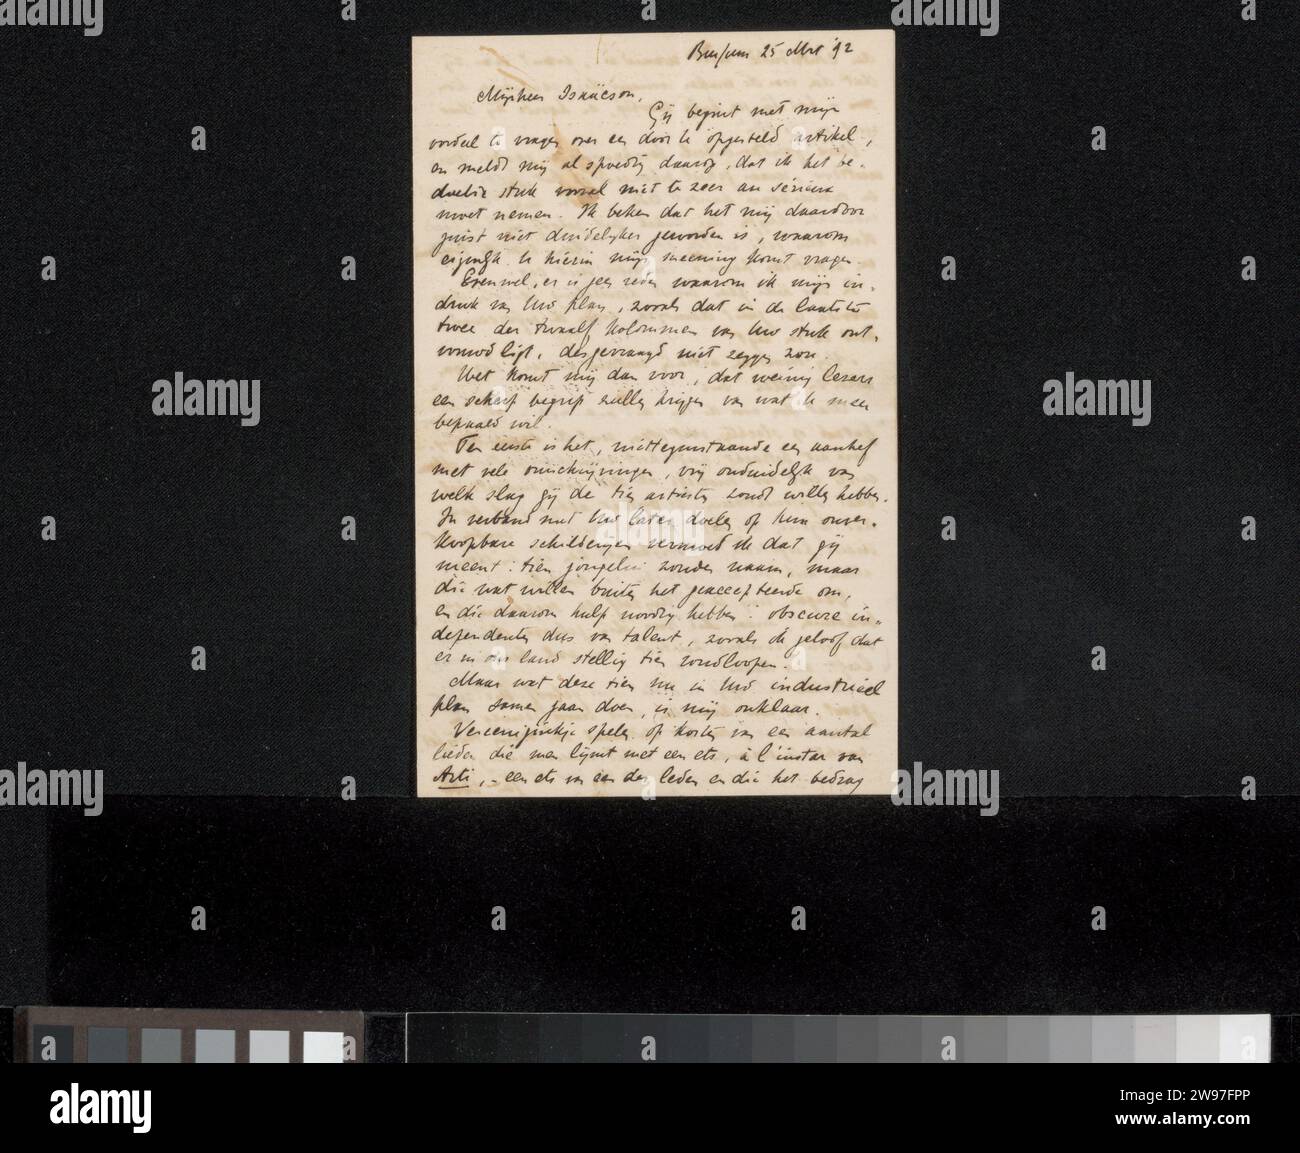 Bussum 25 Mrt '92
Mijnheer Isaäcson,
Gij begint met mijn
oordeel te vragen over een door U opgesteld artikel,
en meldt mij al spoedig daarop, dat ik het be-
doelde stuk vooral niet te zeer au sérieux
moet nemen. Ik beken dat het mij daardoor
juist niet duidelijker geworden is, waarom
eigenlijk U hierin mijn meening komt vragen.
Evenwel, er is geen reden waarom ik mijn in-
druk van Uw plan, zooals dat in de laatste
twee der twaalf kolommen van Uw stuk ont-
vouwd ligt, desgevraagd niet zeggen zou.
Het komt mij dan voor, dat weinig lezers
een scherp begrip zullen krijgen van wat U meer
bepaald wil.
Ten eerste is het, niettegenstaande een aanhef
met vele omschrijvingen, vrij onduidelijk van
welk slag gij de tien artiesten zoudt willen hebben.
In verband met Uw later doelen op hun onver-
koopbare schilderijen vermoed ik dat gij
meent: tien jongelui zonder naam, maar
die wat willen buiten het geaccepteerde om,
en die daarom hulp noodig hebben: obscure in-
dependenten dus van talent, zooals ik geloof dat
er in ons land stellig tien rondloopen.
Maar wat deze tien nu in Uw industrieel
plan samen gaan doen, is mij onklaar.
Vereenigingetje spelen op kosten van een aantal
lieden die men lijmt met een ets, à l'instar van
Arti, - een ets van een der leden en die het bedrag
alamy
Image ID: 2W97FPP
www.alamy.com